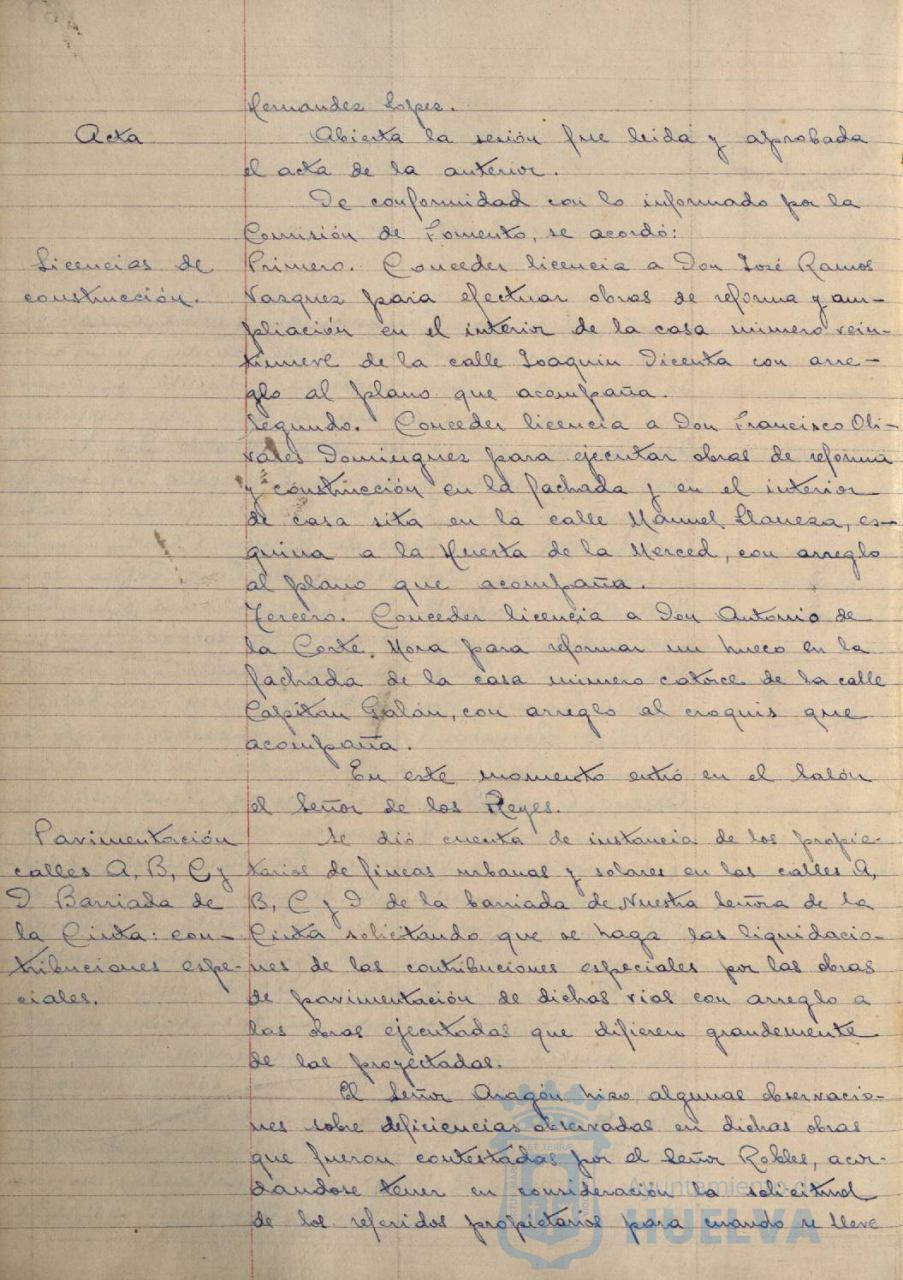 Hernandez Lopez.
Acta
Abierta la sesión fue leida y aprobada
el acta de la anterior.
De conformidad con lo informado por la
Comisión de Fomento, se acordó:
Licencias de
construcción.
Primero. Conceder licencia a Don José Ramos
Vazquez para efectuar obras de reforma y am-
pliación en el interior de la casa número vein-
tinueve de la calle Joaquin Dicenta con arre-
glo al plano que acompaña.
Segundo. Conceder licencia a Don Francisco Oli-
vares Dominguez para ejecutar obras de reforma
y construcción en la fachada y en el interior
de casa sita en la calle Manuel Llaneza, es-
quina a la Huerta de la Merced, con arreglo
al plano que acompaña.
Tercero. Conceder licencia a Don Antonio de
la Corte Mora para reformar un hueco en la
fachada de la casa número catorce de la calle
Capitán Galán, con arreglo al croquis que
acompaña.
En este momento entró en el salón
el Señor de los Reyes.
Pavimentación
calles A, B, C y
D Barriada de
la Cinta: con-
tribuciones espe-
ciales.
Se dió cuenta de instancia de los propie-
tarios de fincas urbanas y solares en las calles A,
B, C y D de la barriada de Nuestra Señora de la
Cinta solicitando que se haga las liquidacio-
nes de las contribuciones especiales por las obras
de pavimentación de dichas vias con arreglo a
las obras ejecutadas que difieren grandemente
de las proyectadas.
El Señor Aragón hizo algunas observacio-
nes sobre deficiencias observadas en dichas obras
que fueron contestadas por el Señor Robles, acor-
dandose tener en consideración la solicitud
de los referidos propietarios para cuando se lleve
Ayuntamiento de
HUELVA